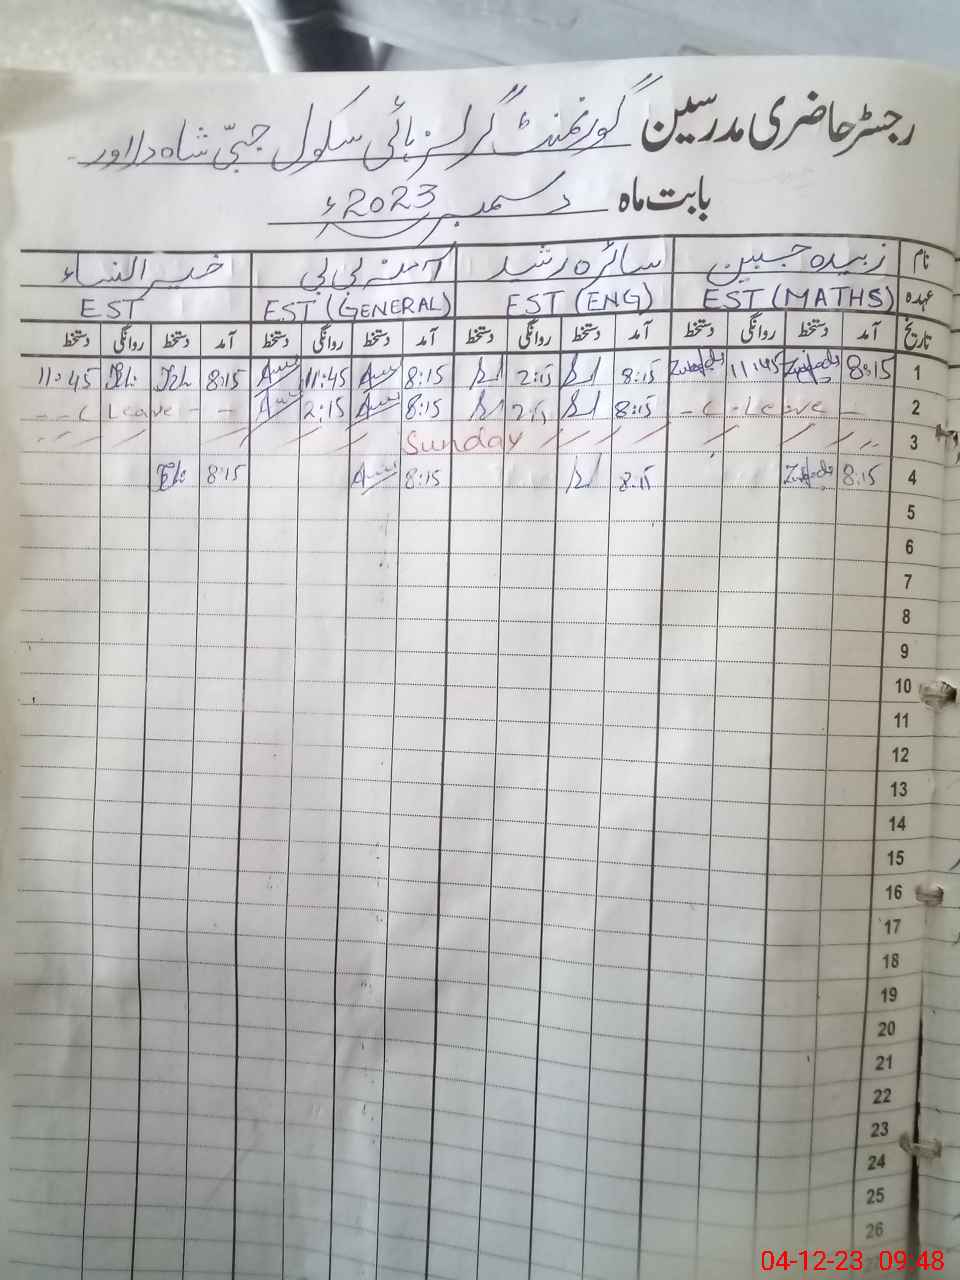 رجسٹر حاضری مدرسین گورنمنٹ گرلز ہائی سکول جبّی شاہ دلاور
بابت ماہ دسمبر 2023ء
نام زبیدہ جبین سائرہ رشید آمنہ بی بی خیر النساء
عہدہ EST (MATHS) EST (ENG) EST (GENERAL) EST
تاریخ آمد دستخط روانگی دستخط آمد دستخط روانگی دستخط آمد دستخط روانگی دستخط آمد دستخط روانگی دستخط
1 8:15 11:45 8:15 2:15 8:15 11:45 8:15 11:45
2 - C - Leave - 8:15 2:15 8:15 2:15 - - C Leave - -
3 Sunday
4 8:15 8:15 8:15 8:15
5
6
7
8
9
10
11
12
13
14
15
16
17
18
19
20
21
22
23
24
25
26
04-12-23 09:48